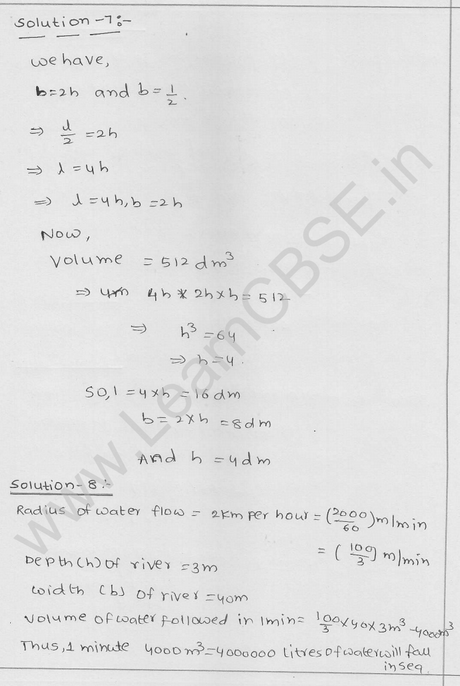 Solution-7:-
we have,
b=2h and b=1/2.
⇒ l/2 = 2h
⇒ l = 4h
⇒ l = 4h, b = 2h
Now,
Volume = 512 dm³
⇒ 4h * 2h × h = 512
⇒ h³ = 64
⇒ h = 4.
So, l = 4×h = 16 dm
b = 2×h = 8 dm
And h = 4 dm
Solution-8:-
Radius of water flow = 2km per hour = (2000/60) m/min
= (100/3) m/min
Depth (h) of river = 3m
width (b) of river = 40m
Volume of water followed in 1min = 100/3 × 40 × 3m³ - 4000m³
Thus, 1 minute 4000m³ = 4000000 litres of water will fall
in sea.
www.LearnCBSE.in